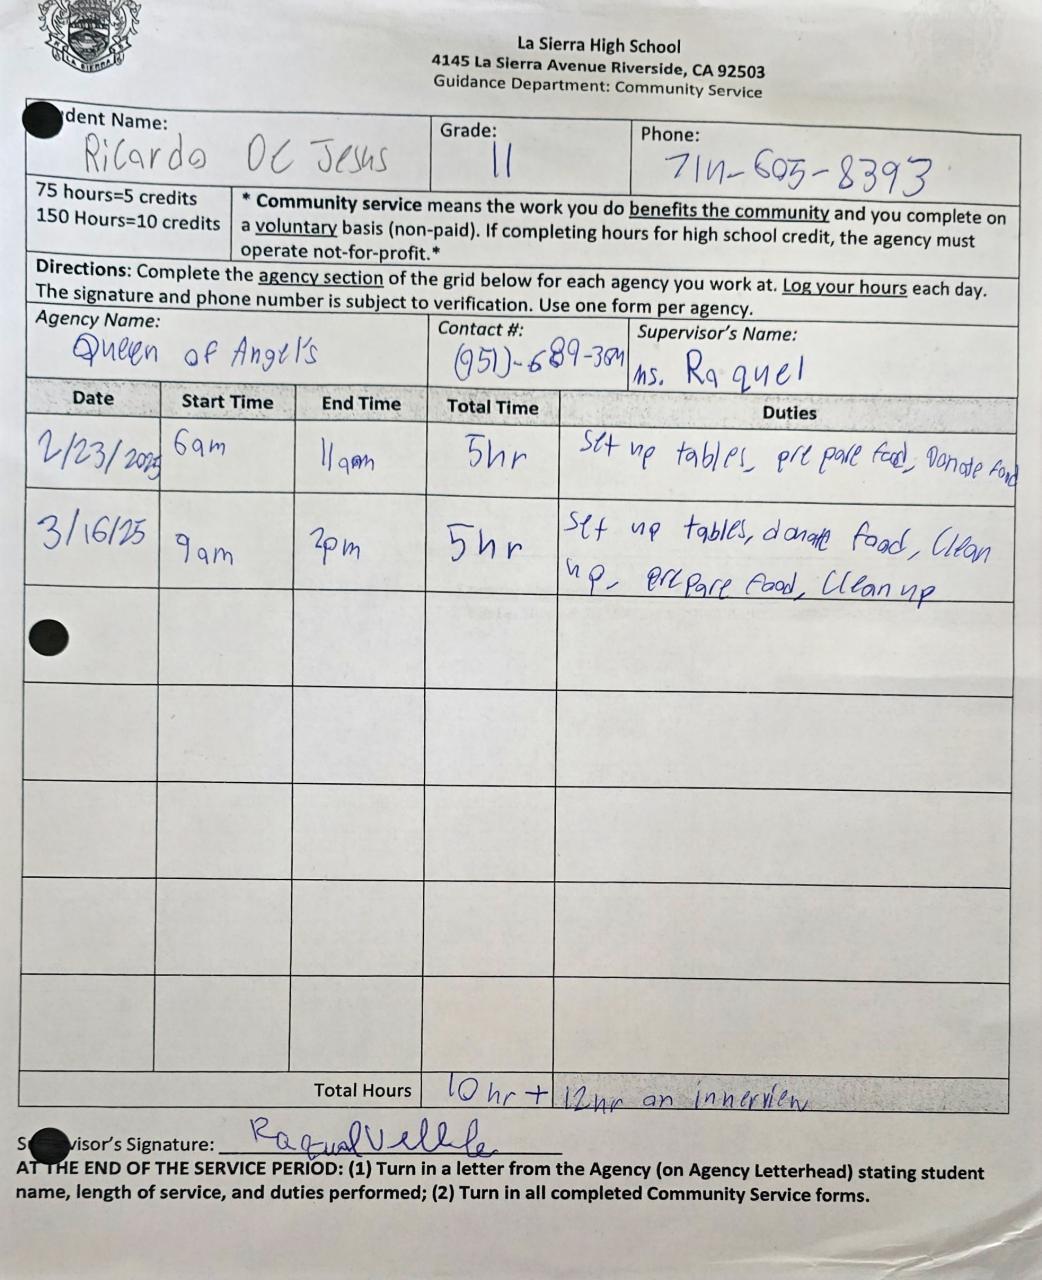 LA SIERRA
La Sierra High School
4145 La Sierra Avenue Riverside, CA 92503
Guidance Department: Community Service
dent Name:
Ricardo De Jesus
Grade:
11
Phone:
714-605-8393
75 hours=5 credits
150 Hours=10 credits
* Community service means the work you do benefits the community and you complete on
a voluntary basis (non-paid). If completing hours for high school credit, the agency must
operate not-for-profit.*
Directions: Complete the agency section of the grid below for each agency you work at. Log your hours each day.
The signature and phone number is subject to verification. Use one form per agency.
Agency Name:
Queen of Angel's
Contact #:
(951)-689-
Supervisor's Name:
Ms. Raquel
Date Start Time End Time Total Time Duties
2/23/2025 6am 11am 5hr Set up tables, prepare food, Donate food
3/16/25 9am 2pm 5hr Set up tables, donate food, Clean
up, prepare food, Clean up
Total Hours 10hr + 12hr an innerview
S visor's Signature: Raquel
AT THE END OF THE SERVICE PERIOD: (1) Turn in a letter from the Agency (on Agency Letterhead) stating student
name, length of service, and duties performed; (2) Turn in all completed Community Service forms.